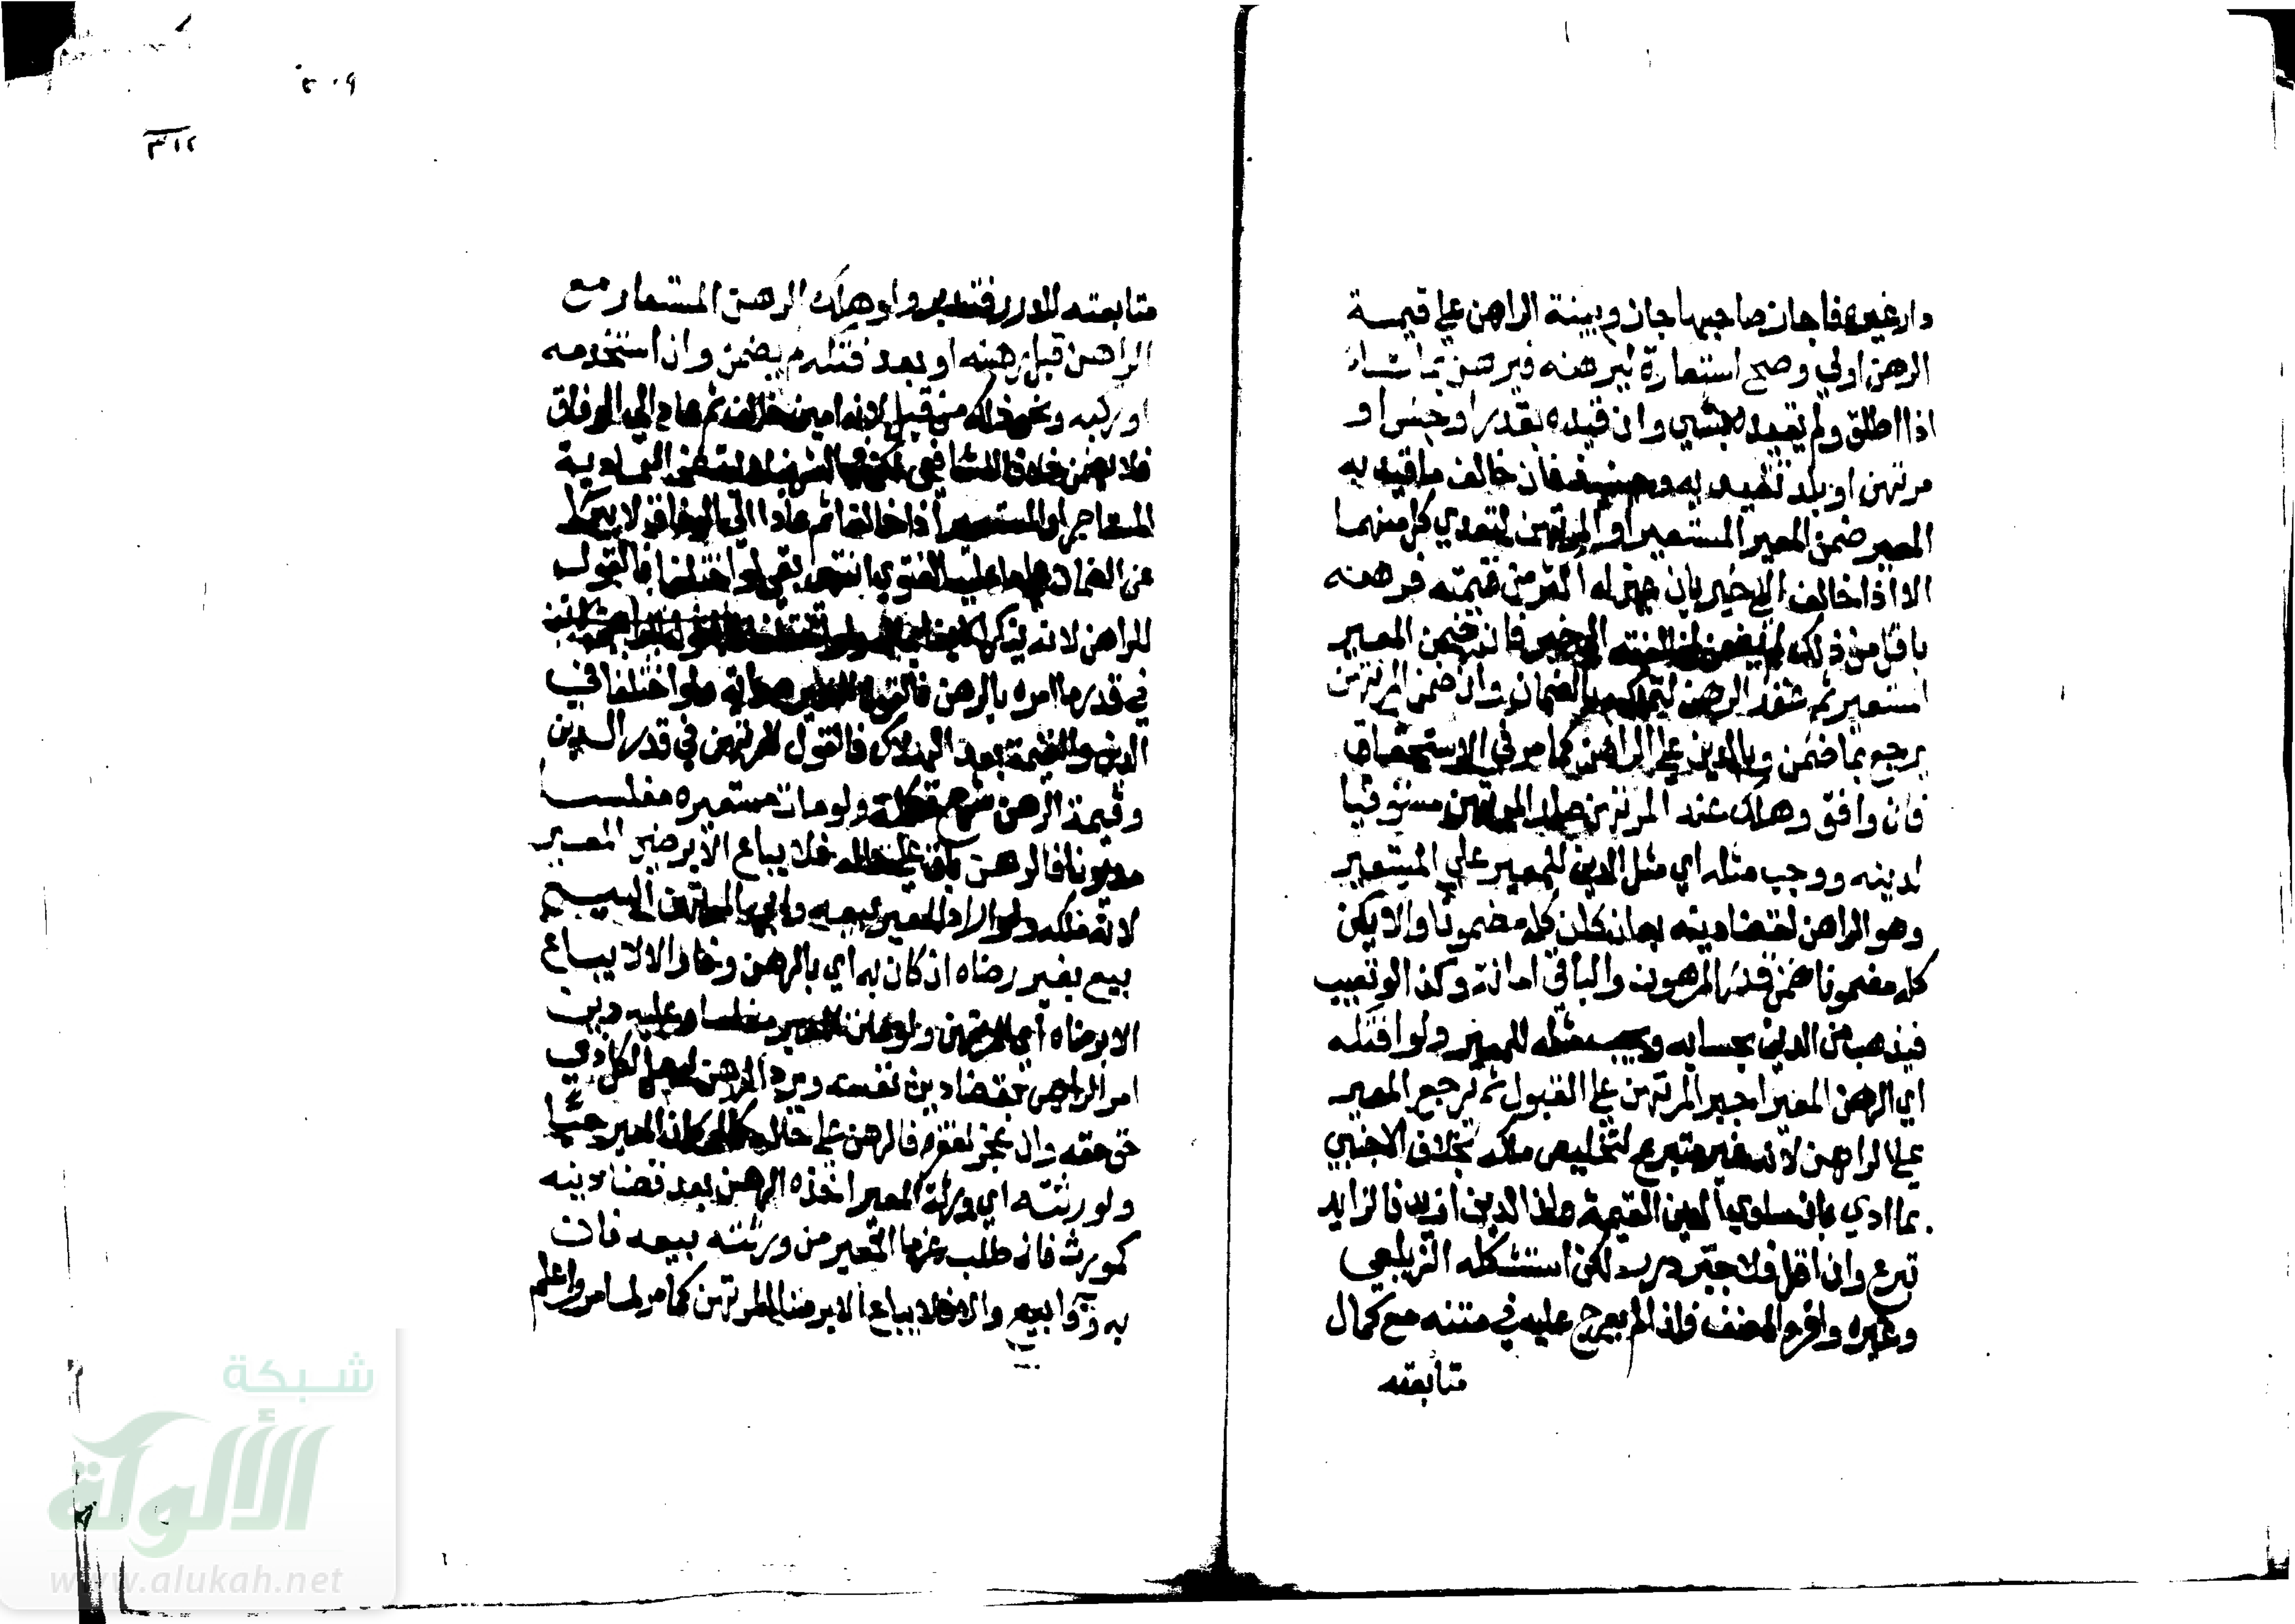 دار غيره فاجاز صاحبها جاز وبينة الراهن على قيمة
الرهن اولي وصح استعارة ليرهنه فيرهن بما شاء
اذا اطلق ولم يقيده بشي وان قيده بقدر او جنس او
مرتهن او بلد تقيد به فان خالف ما قيده به
المعير ضمن المعير المستعير او المرتهن لتعدي كل منهما
الا اذا خالف الي خير بان عين له اكثر من قيمته فرهنه
باقل من ذلك لم يضمن لمخالفته الي خير فان ضمن المعير
المستعير تم عقد الرهن لتملكه بالضمان وان ضمن المرتهن
يرجع بما ضمن وبالدين على الراهن كما مر في الاستحقاق
فان وافق وهلك عند المرتهن صار المرتهن مستوفيا
لدينه ووجب مثله اي مثل الدين للمعير علي المستعير
وهو الراهن لقضا دينه به ان كان كله مضمونا والا يكن
كله مضمونا ضمن قدر المرهون والباقي امانة وكذا لو تعيب
فيذهب من الدين بحسابه ويجب مثله للمعير ولو افتكه
اي الرهن المعير اجبر المرتهن على القبول ثم يرجع المعير
على الراهن لانه غير متبرع لتخليص ملكه بخلاف الاجنبي
بما ادي بان ساوي الدين القيمة وان الدين ازيد فالزايد
تبرع وان اقل فلا جبر درر لكن استشكله الزيلعي
وغيره واقره المصنف فلذا لم يعرج عليه في متنه مع كمال
متابعته
متابعته للدرر فتدبر ولو هلك الرهن المستعار مع
الراهن قبل رهنه او بعد فكه لم يضمن وان استخدمه
او ركبه ونحو ذلك من قبل لانه امين خالف ثم عاد الي الوفاق
فلا يضمن خلافا للشافعي لكن في الشرنبلالية عن العمادية
المستاجر او المستعير اذا خالفا ثم عادا الي الوفاق لا يبرا
عن الضمان على ما عليه الفتوي انتهي بقي لو اختلفا فالقول
للراهن لانه ينكر
في قدر ما امره بالرهن فالقول للمعير هداية ولو اختلفا في
الدين والقيمة بعد الهلاك فالقول للمرتهن في قدر الدين
وقيمة الرهن شرح تكملة ولو مات مستعيره مفلسا
مديونا فالرهن باق على حاله فلا يباع الا برضي المعير
لانه ملكه ولو اراد المعير بيعه وابي المرتهن البيع
بيع بغير رضاه ان كان به اي بالرهن وفا والا لا يباع
الا برضاه اي المرتهن ولو مات المعير مفلسا وعليه دين
امر الراهن بقضا دين نفسه ويرد الرهن ليصل كل ذي
حق حقه وان عجز لفقره فالرهن على حاله كما لو كان المعير حيا
ولورثته اي ورثة المعير اخذه الرهن بعد قضا دينه
كمورث فان طلب غرما المعير من ورثته بيعه فان
به وفا بيع والا فلا يباع الا برضا المرتهن كما مر لما مر واعلم
٣١٢
شبكة
الألوكة
www.alukah.net